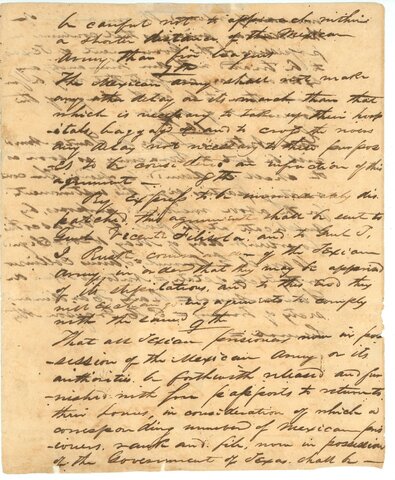 be careful not to approach within
a shorter distance of the Mexican
Army than five leagues
7th
The Mexican army shall not make
any other delay on its march than that
which is necessary to take up their hosp
-itals, baggage and to cross the rivers
any delay not necessary to these purpos
-es to be considered an infraction of this
agreement — 8th
By express to be immediately dis
patched, this agreement shall be sent to
Genl Vicente Filisola and to Genl T.
J. Rusk, commander of the Texian
Army, in order that they may be apprised
of its stipulations, and to this end they
will exchange engagements to comply
with the same 9th
That all Texian prisoners now in pos
-session of the Mexican Army, or its
authorities be forthwith released and fur
-nished with free passports to return to
their homes, in consideration of which a
corresponding number of Mexican pris
-oners, rank and file, now in possession
of the Government of Texas shall be